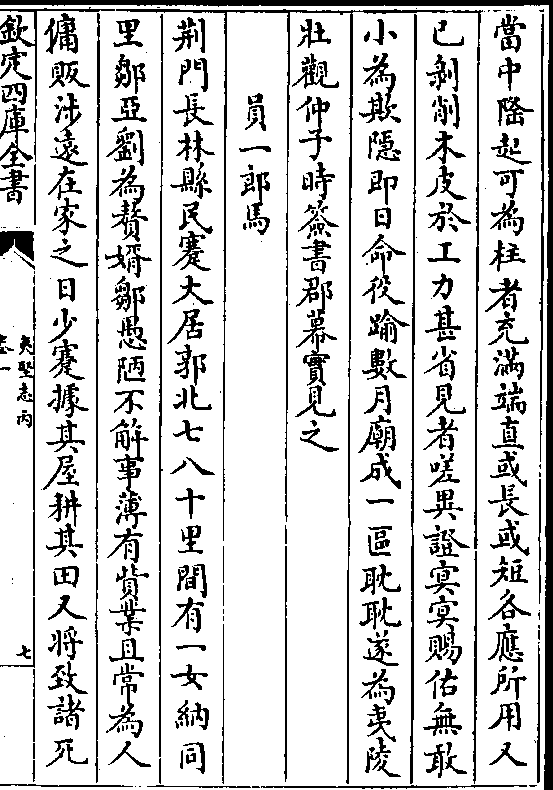 當中隆起可為柱者充滿端直或長或短各應所用又
已剝削木皮於工力甚省見者嗟異證㝠㝠賜佑無敢
小為欺隱即日命役踰數月廟成一區耽耽遂為夷陵
壯觀仲子時簽書郡幕實見之
員一郎馬
荆門長林縣民蹇大居郭北七八十里間有一女納同
里鄒亞劉為贅婿鄒愚陋不解事薄有貲業且常為人
傭販涉遠在家之日少蹇據其屋耕其田又將致諸死
欽定四庫全書
夷堅志丙
卷一
七